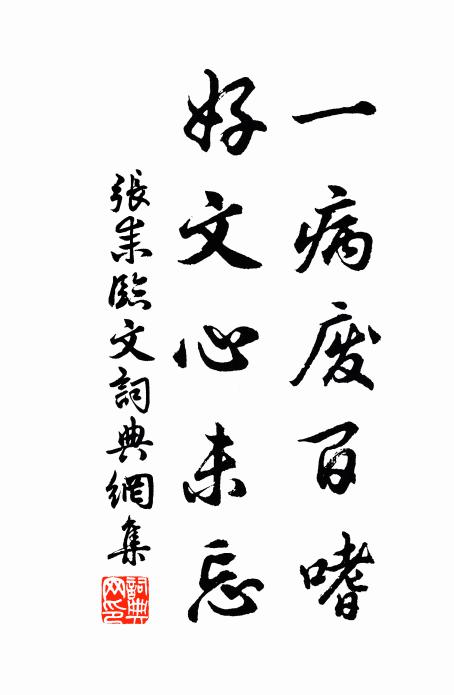 一病废百嗜
好文心未忘
張耒臨文詞典網集
詞典網印